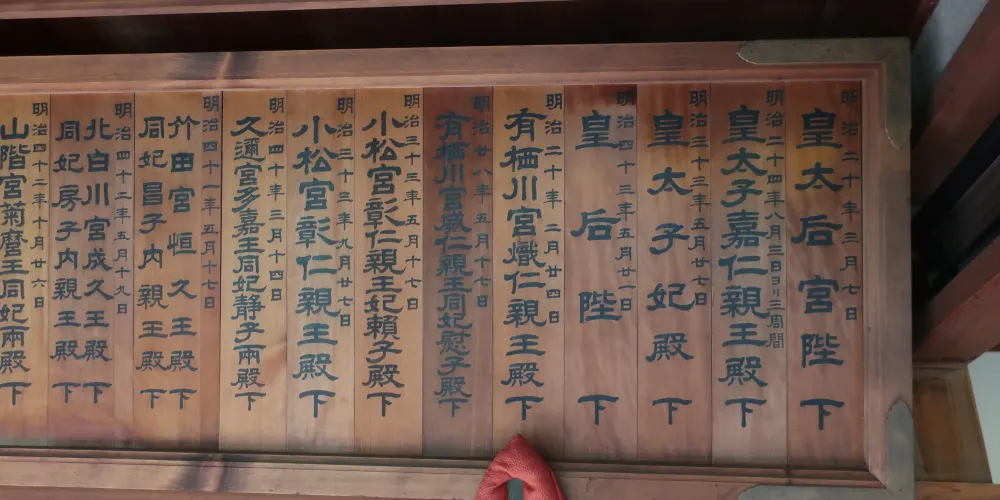 明治二十年三月七日
皇太后宮陛下
明治二十四年八月三日ヨリ三周間
皇太子嘉仁親王殿下
明治三十三年五月廿七日
皇太子妃殿下
明治四十三年五月廿一日
皇后陛下
明治二十年二月廿四日
有栖川宮熾仁親王殿下
明治廿八年五月十七日
有栖川宮威仁親王同妃慰子殿下
明治三十三年五月十七日
小松宮彰仁親王妃頼子殿下
明治三十三年九月廿七日
小松宮彰仁親王殿下
明治四十年三月十四日
久邇宮多嘉王同妃静子両殿下
明治四十一年五月十七日
竹田宮恒久王殿下
同妃昌子内親王殿下
明治四十二年五月十九日
北白川宮成久王殿下
同妃房子内親王殿下
明治四十二年十月廿六日
山階宮菊麿王同妃両殿下